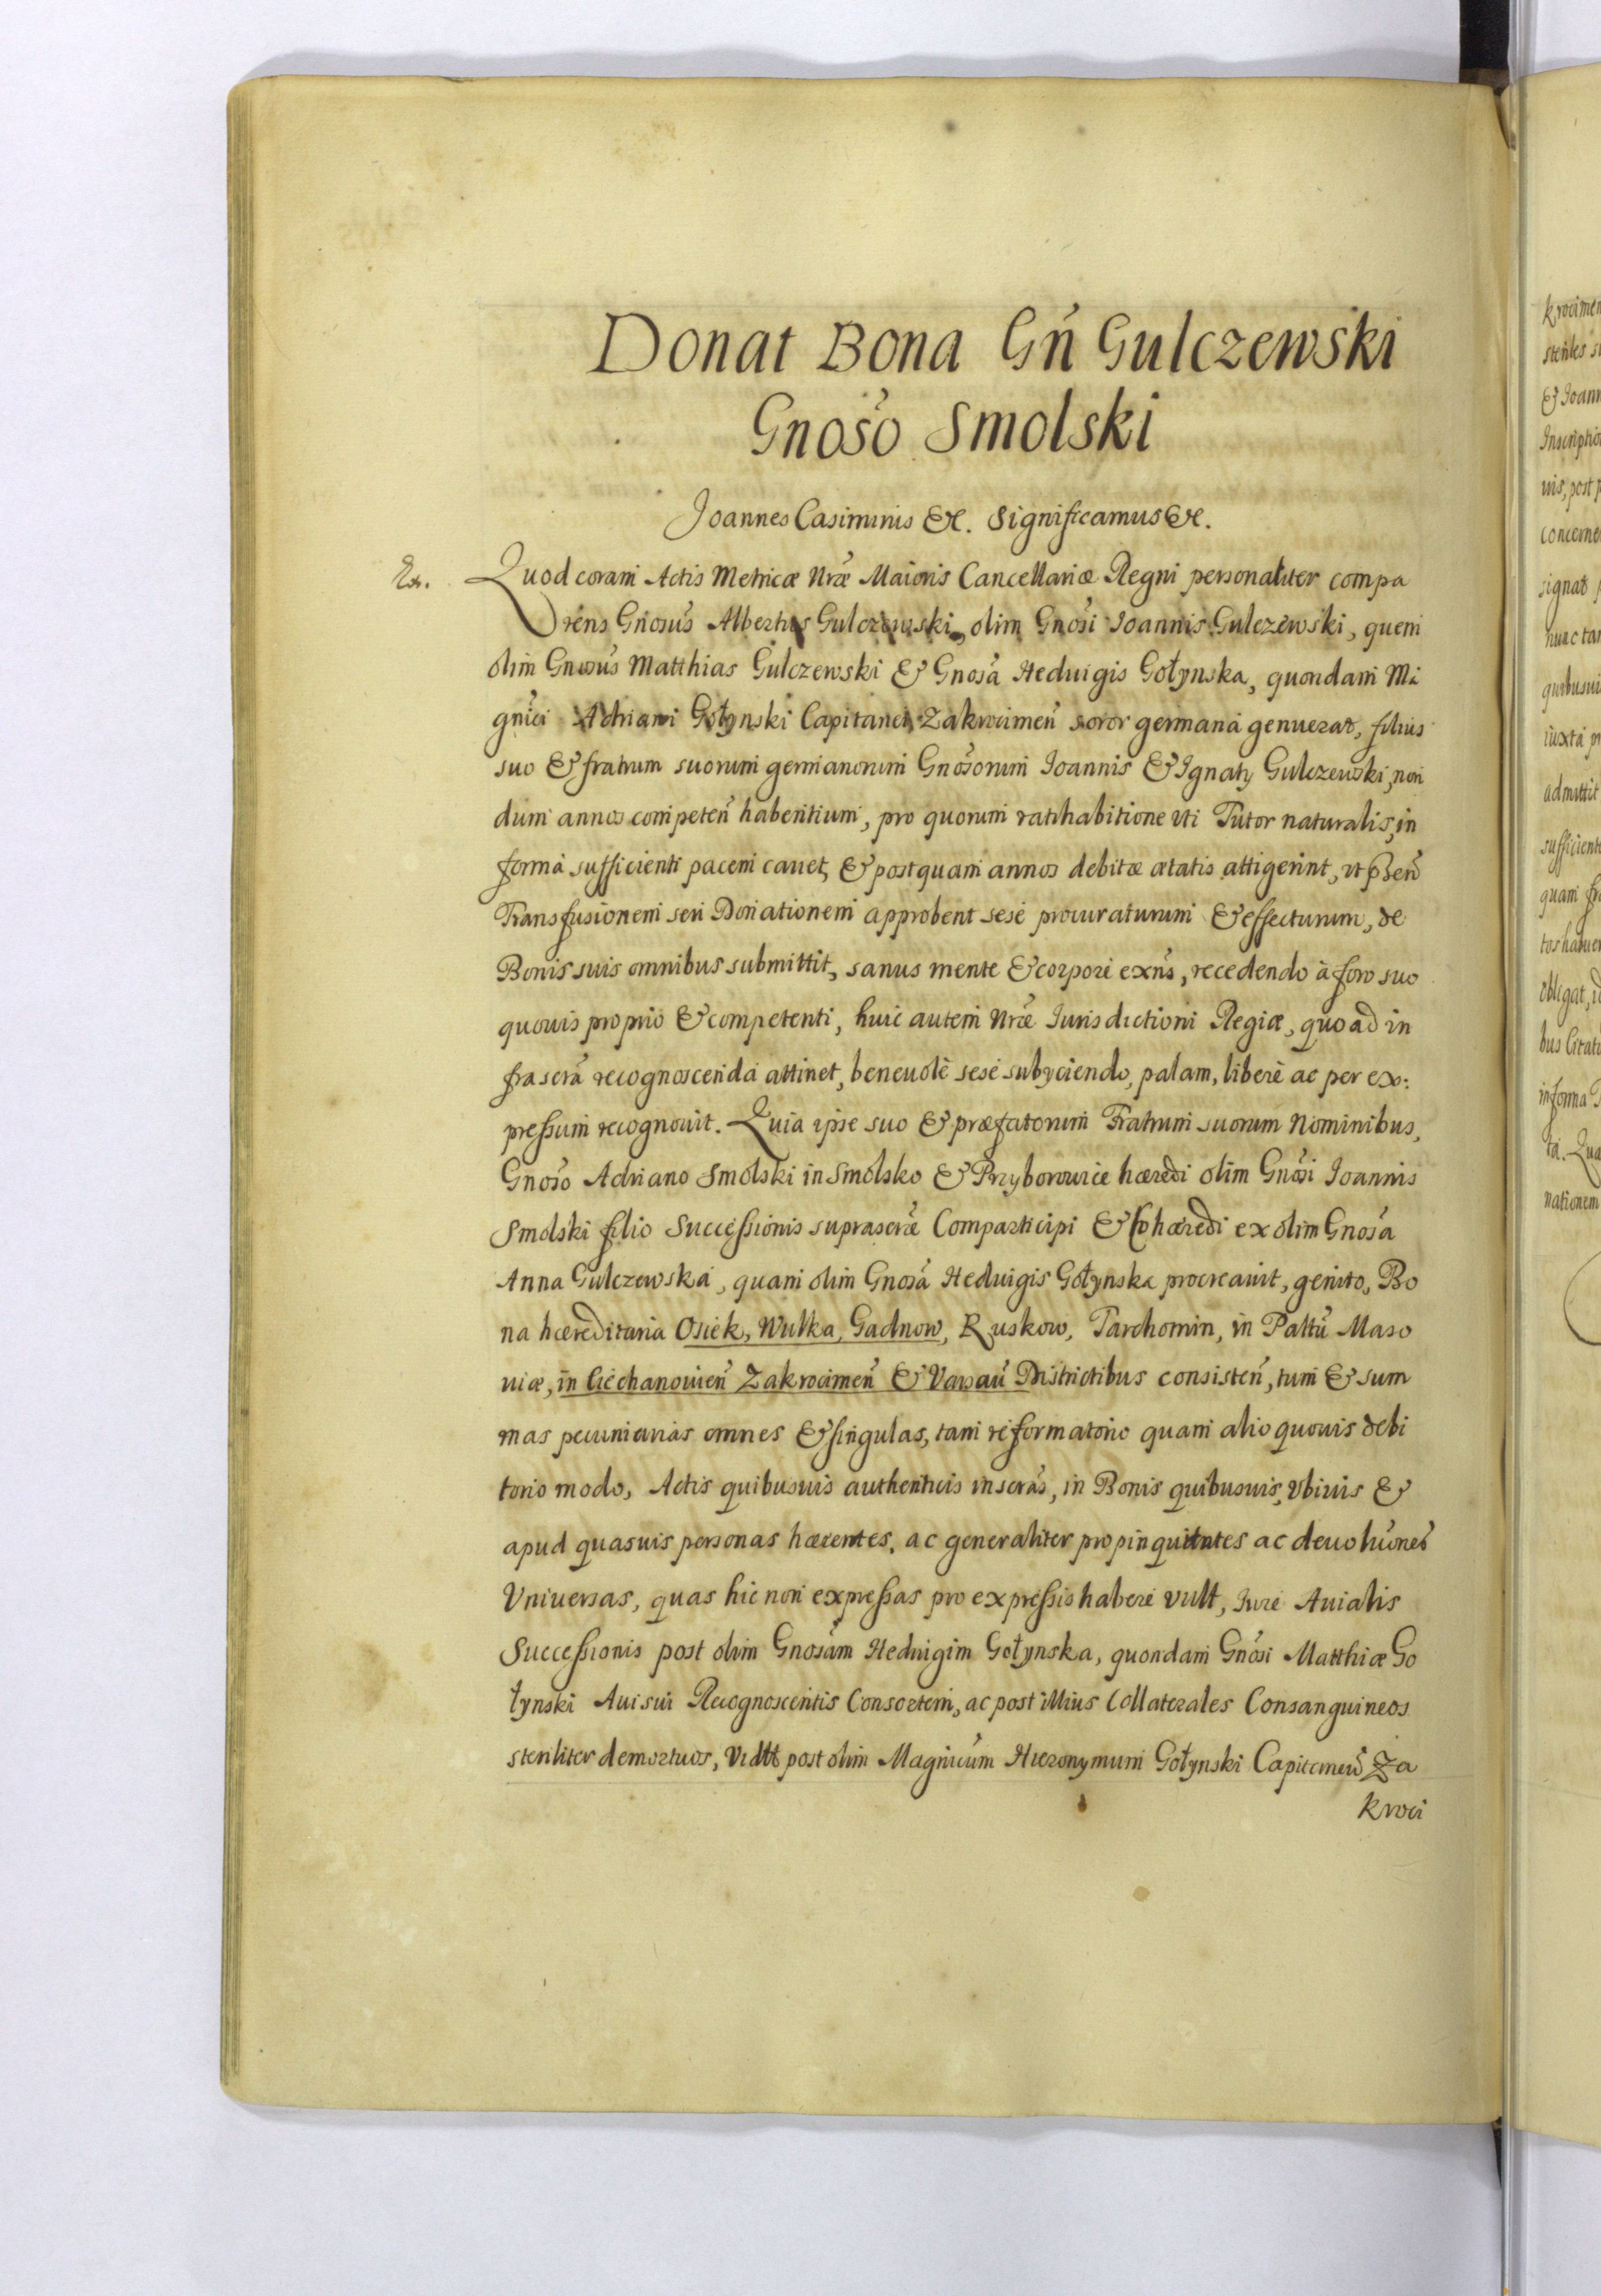 Donat Bona Gń Gulczewski
Gnosó Smolski
Joannes Casimirus &c. Significamus &c.
Ex. Quod coram Actis Metricæ Nræ Maioris Cancellariæ Regni personaliter compa
rens Gnosus Albertus Gulczewski, olim Gnosi Ioannis Gulczewski, quem
olim Gnosus Matthias Gulczewski & Gnosa Heduigis Gołynska, quondam Ma
gnici Adriani Gołynski Capitanei Zakrocimeń soror germana genuerat, filius
suo & fratrum suorum germanorum Gnosorum Ioannis & Ignaty Gulczewski, non
dum annos competeń habentium, pro quorum ratihabitione vti Tutor naturalis, in
forma sufficienti pacem cauet, & postquam annos debitæ ætatis attigerint, vt pńseń
Transfusionem seu Donationem approbent sese procuraturum & effecturum, de
Bonis suis omnibus submittit, sanus mente & corpore exńs, recedendo à foro suo
quouis proprio & competenti, huic autem Nræ Iurisdictioni Regiæ, quoad in
frascra recognoscenda attinet, beneuolè sese subyciendo, palam, liberè ac per ex:
pressum recognouit. Quia ipse suo & præfatorum Fratrum suorum Nominibus,
Gnoso Adriano Smolski in Smolsko & Przyborowice hæredi olim Gnosi Ioannis
Smolski filio Successionis suprascræ Comparticipi & Cohæredi ex olim Gnosa
Anna Gulczewska, quam olim Gnosa Heduigis Gołynska procreauit, genito, Bo
na hæreditaria Osiek, Wulka, Gadnow, Ruskow, Tarchomin, in Pałtu Maso
uiæ, in Ciechanouień Zakrocimeń & Varsaú Districtibus consisteń, tum & sum
mas pecuniarias omnes & singulas, tam reformatorio quam alio quouis debi
torio modo, Actis quibusuis authenticis inscras, in Bonis quibusuis, Vbiuis &
apud quasuis personas hærentes, ac generaliter propinquitates ac deuoluónes
Vniuersas, quas hic non expressas pro expressis habere vult, Iure Auialis
Successionis post olim Gnosam Heduigim Gołynska, quondam Gnosi Matthiæ Go
łynski Aui sui Recognoscentis Consortem, ac post illius Collaterales Consanguineos
steriliter demortuos, Vidłt post olim Magnicum Hieronymum Gołynski Capitaneú Za
kroci